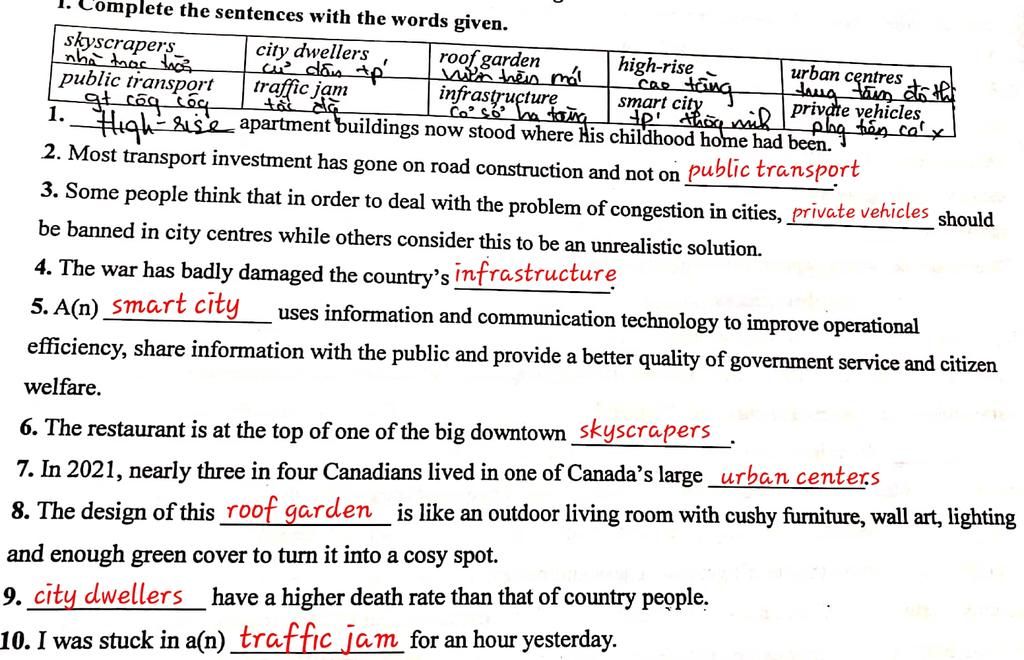 1. Complete the sentences with the words given.
skyscrapers city dwellers roof garden high-rise urban centres
nhà chọc trời cư dân tp vườn trên mái cao tầng trung tâm đô thị
public transport traffic jam infrastructure smart city private vehicles
gt côg cộg tắc đg cơ sở hạ tầng tp' thôg mih phg tiện cá
1. High-rise apartment buildings now stood where his childhood home had been.
2. Most transport investment has gone on road construction and not on public transport.
3. Some people think that in order to deal with the problem of congestion in cities, private vehicles should
be banned in city centres while others consider this to be an unrealistic solution.
4. The war has badly damaged the country's infrastructure.
5. A(n) smart city uses information and communication technology to improve operational
efficiency, share information with the public and provide a better quality of government service and citizen
welfare.
6. The restaurant is at the top of one of the big downtown skyscrapers.
7. In 2021, nearly three in four Canadians lived in one of Canada's large urban centers.
8. The design of this roof garden is like an outdoor living room with cushy furniture, wall art, lighting
and enough green cover to turn it into a cosy spot.
9. city dwellers have a higher death rate than that of country people.
10. I was stuck in a(n) traffic jam for an hour yesterday.